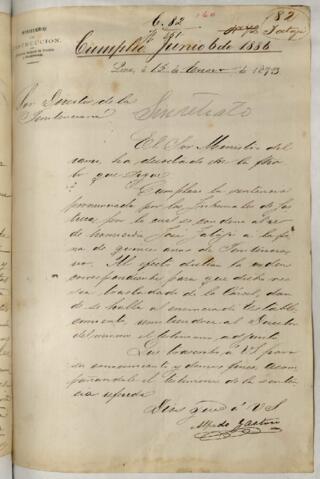 6.82
82
MINISTERIO
INSTRUCCION.
Cumplió Junio 6 de 1888
Lima, á 15 de Enero de 1873
Sor Director de la
Penitenciaria
Sin retrato
El Sor Ministro del
ramo, ha decretado con la fecha
lo que sigue
"Cumplase la sentencia
pronunciada por los Tribunales de Jus
ticia por la cual se condena al reo
de homicidio José á la pe
na de quince años de Penitencia
ria. Al efecto dictese la orden
correspondiente para que dicho reo
sea trasladado de la Cárcel, don
de se halla al enunciado Estable
cimiento, remitiendose al Director
del mismo el testimonio adjunto
Que trascribo á VS para
su conocimiento y demas fines, acom
pañandole el testimonio de la senten
cia referida
Dios gue á VS
Alfredo Gastón